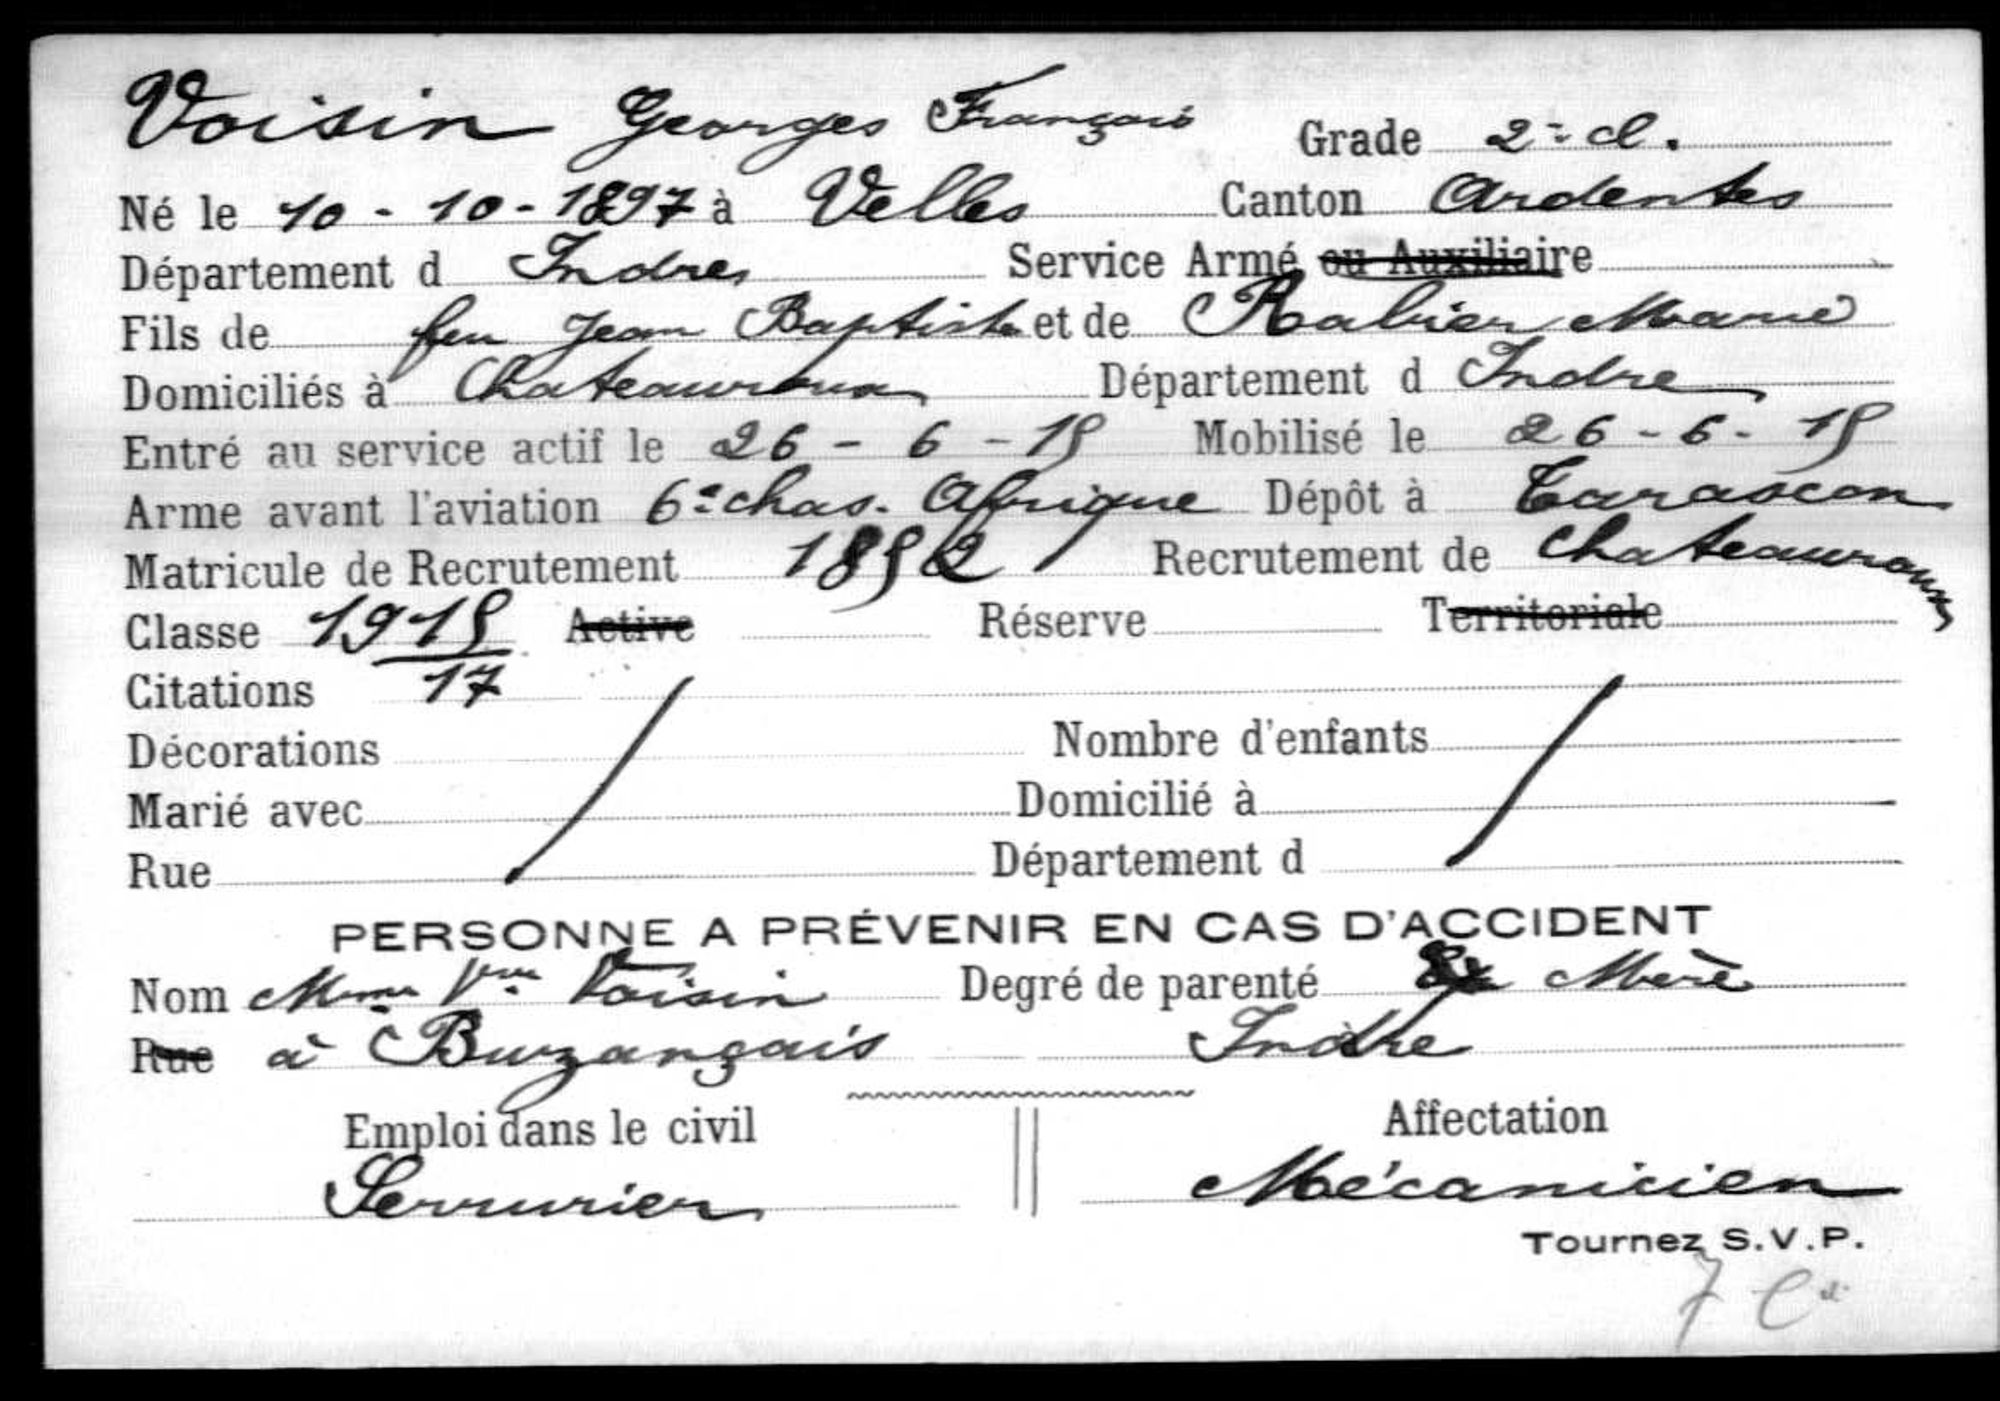 Voisin Georges François Grade 2e cl.
Né le 10-10-1897 à Velles Canton Ardentes
Département d Indre Service Armé ou Auxiliaire
Fils de feu Jean Baptiste et de Rabier Marie
Domiciliés à Chateauroux Département d Indre
Entré au service actif le 26-6-15 Mobilisé le 26-6-15
Arme avant l'aviation 6e chas. Afrique Dépôt à Tarascon
Matricule de Recrutement 1852 Recrutement de Chateauroux
Classe 1915 Active Réserve Territoriale
Citations 17
Décorations Nombre d'enfants
Marié avec Domicilié à
Rue Département d
PERSONNE A PRÉVENIR EN CAS D'ACCIDENT
Nom Mme Vve Voisin Degré de parenté Mère
Rue à Buzançais Indre
Emploi dans le civil Affectation
Serrurier Mécanicien
Tournez S.V.P.